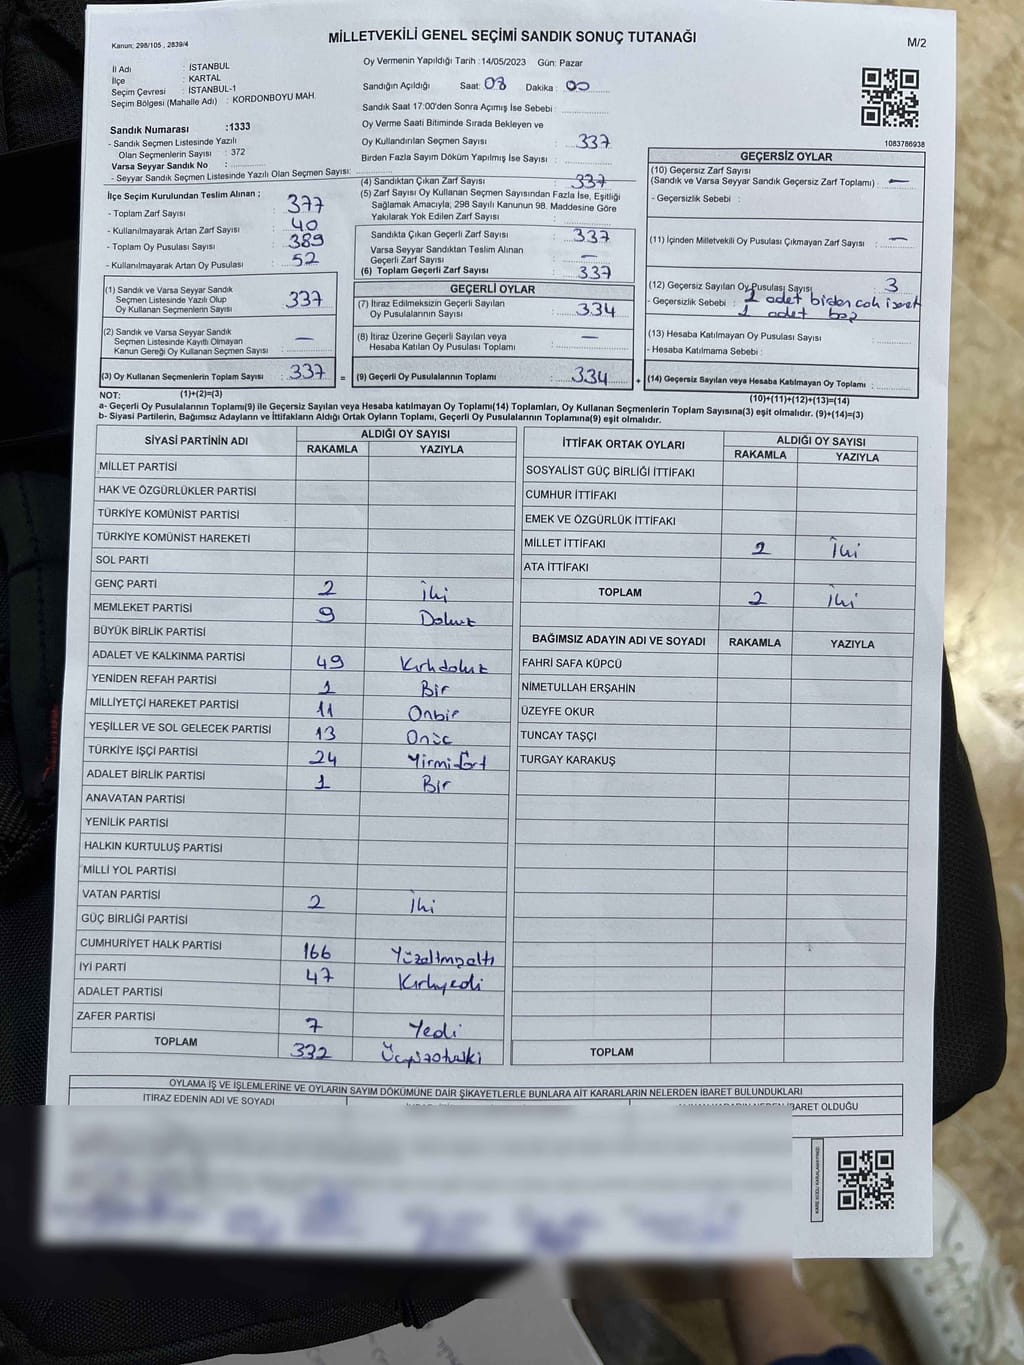 Kanun: 298/105 , 2839/4
MİLLETVEKİLİ GENEL SEÇİMİ SANDIK SONUÇ TUTANAĞI
M/2
İl Adı : İSTANBUL
İlçe : KARTAL
Seçim Çevresi : İSTANBUL-1
Seçim Bölgesi (Mahalle Adı) : KORDONBOYU MAH.
Oy Vermenin Yapıldığı Tarih : 14/05/2023 Gün: Pazar
Sandığın Açıldığı Saat: 08 Dakika : 00
Sandık Saat 17:00'den Sonra Açımış İse Sebebi :
Oy Verme Saati Bitiminde Sırada Bekleyen ve
Oy Kullandırılan Seçmen Sayısı : 337
Birden Fazla Sayım Döküm Yapılmış İse Sayısı :
1083786938
Sandık Numarası :1333
- Sandık Seçmen Listesinde Yazılı
Olan Seçmenlerin Sayısı : 372
Varsa Seyyar Sandık No :
- Seyyar Sandık Seçmen Listesinde Yazılı Olan Seçmen Sayısı:
İlçe Seçim Kurulundan Teslim Alınan ;
- Toplam Zarf Sayısı : 377
- Kullanılmayarak Artan Zarf Sayısı : 40
- Toplam Oy Pusulası Sayısı : 389
- Kullanılmayarak Artan Oy Pusulası : 52
(1) Sandık ve Varsa Seyyar Sandık
Seçmen Listesinde Yazılı Olup
Oy Kullanan Seçmenlerin Sayısı : 337
(2) Sandık ve Varsa Seyyar Sandık
Seçmen Listesinde Kayıtlı Olmayan
Kanun Gereği Oy Kullanan Seçmen Sayısı : —
(3) Oy Kullanan Seçmenlerin Toplam Sayısı : 337 =
(1)+(2)=(3)
(4) Sandıktan Çıkan Zarf Sayısı : 337
(5) Zarf Sayısı Oy Kullanan Seçmen Sayısından Fazla İse, Eşitliği
Sağlamak Amacıyla; 298 Sayılı Kanunun 98. Maddesine Göre
Yakılarak Yok Edilen Zarf Sayısı :
Sandıkta Çıkan Geçerli Zarf Sayısı : 337
Varsa Seyyar Sandıktan Teslim Alınan
Geçerli Zarf Sayısı : —
(6) Toplam Geçerli Zarf Sayısı : 337
GEÇERLİ OYLAR
(7) İtiraz Edilmeksizin Geçerli Sayılan
Oy Pusulalarının Sayısı : 334
(8) İtiraz Üzerine Geçerli Sayılan veya
Hesaba Katılan Oy Pusulası Toplamı : —
(9) Geçerli Oy Pusulalarının Toplamı : 334 +
GEÇERSİZ OYLAR
(10) Geçersiz Zarf Sayısı
(Sandık ve Varsa Seyyar Sandık Geçersiz Zarf Toplamı) : —
- Geçersizlik Sebebi :
(11) İçinden Milletvekili Oy Pusulası Çıkmayan Zarf Sayısı : —
(12) Geçersiz Sayılan Oy Pusulası Sayısı : 3
- Geçersizlik Sebebi : 2 adet birden çok işaret
1 adet boş
(13) Hesaba Katılmayan Oy Pusulası Sayısı :
- Hesaba Katılmama Sebebi :
(14) Geçersiz Sayılan veya Hesaba Katılmayan Oy Toplamı :
(10)+(11)+(12)+(13)=(14)
NOT:
a- Geçerli Oy Pusulalarının Toplamı(9) ile Geçersiz Sayılan veya Hesaba katılmayan Oy Toplamı(14) Toplamları, Oy Kullanan Seçmenlerin Toplam Sayısına(3) eşit olmalıdır. (9)+(14)=(3)
b- Siyasi Partilerin, Bağımsız Adayların ve İttifakların Aldığı Ortak Oyların Toplamı, Geçerli Oy Pusulalarının Toplamına(9) eşit olmalıdır.
SİYASİ PARTİNİN ADI ALDIĞI OY SAYISI
RAKAMLA YAZIYLA
MİLLET PARTİSİ
HAK VE ÖZGÜRLÜKLER PARTİSİ
TÜRKİYE KOMÜNİST PARTİSİ
TÜRKİYE KOMÜNİST HAREKETİ
SOL PARTİ
GENÇ PARTİ 2 İki
MEMLEKET PARTİSİ 9 Dokuz
BÜYÜK BİRLİK PARTİSİ
ADALET VE KALKINMA PARTİSİ 49 Kırkdokuz
YENİDEN REFAH PARTİSİ 1 Bir
MİLLİYETÇİ HAREKET PARTİSİ 11 Onbir
YEŞİLLER VE SOL GELECEK PARTİSİ 13 Onüç
TÜRKİYE İŞÇİ PARTİSİ 24 Yirmidört
ADALET BİRLİK PARTİSİ 1 Bir
ANAVATAN PARTİSİ
YENİLİK PARTİSİ
HALKIN KURTULUŞ PARTİSİ
MİLLİ YOL PARTİSİ
VATAN PARTİSİ 2 İki
GÜÇ BİRLİĞİ PARTİSİ
CUMHURİYET HALK PARTİSİ 166 Yüzaltmışaltı
İYİ PARTİ 47 Kırkyedi
ADALET PARTİSİ
ZAFER PARTİSİ 7 Yedi
TOPLAM 332 Üçyüzotuziki
İTTİFAK ORTAK OYLARI ALDIĞI OY SAYISI
RAKAMLA YAZIYLA
SOSYALİST GÜÇ BİRLİĞİ İTTİFAKI
CUMHUR İTTİFAKI
EMEK VE ÖZGÜRLÜK İTTİFAKI
MİLLET İTTİFAKI 2 İki
ATA İTTİFAKI
TOPLAM 2 İki
BAĞIMSIZ ADAYIN ADI VE SOYADI RAKAMLA YAZIYLA
FAHRİ SAFA KÜPCÜ
NİMETULLAH ERŞAHİN
ÜZEYFE OKUR
TUNCAY TAŞÇI
TURGAY KARAKUŞ
TOPLAM
OYLAMA İŞ VE İŞLEMLERİNE VE OYLARIN SAYIM DÖKÜMÜNE DAİR ŞİKAYETLERLE BUNLARA AİT KARARLARIN NELERDEN İBARET BULUNDUKLARI
İTİRAZ EDENİN ADI VE SOYADI
İBARET OLDUĞU